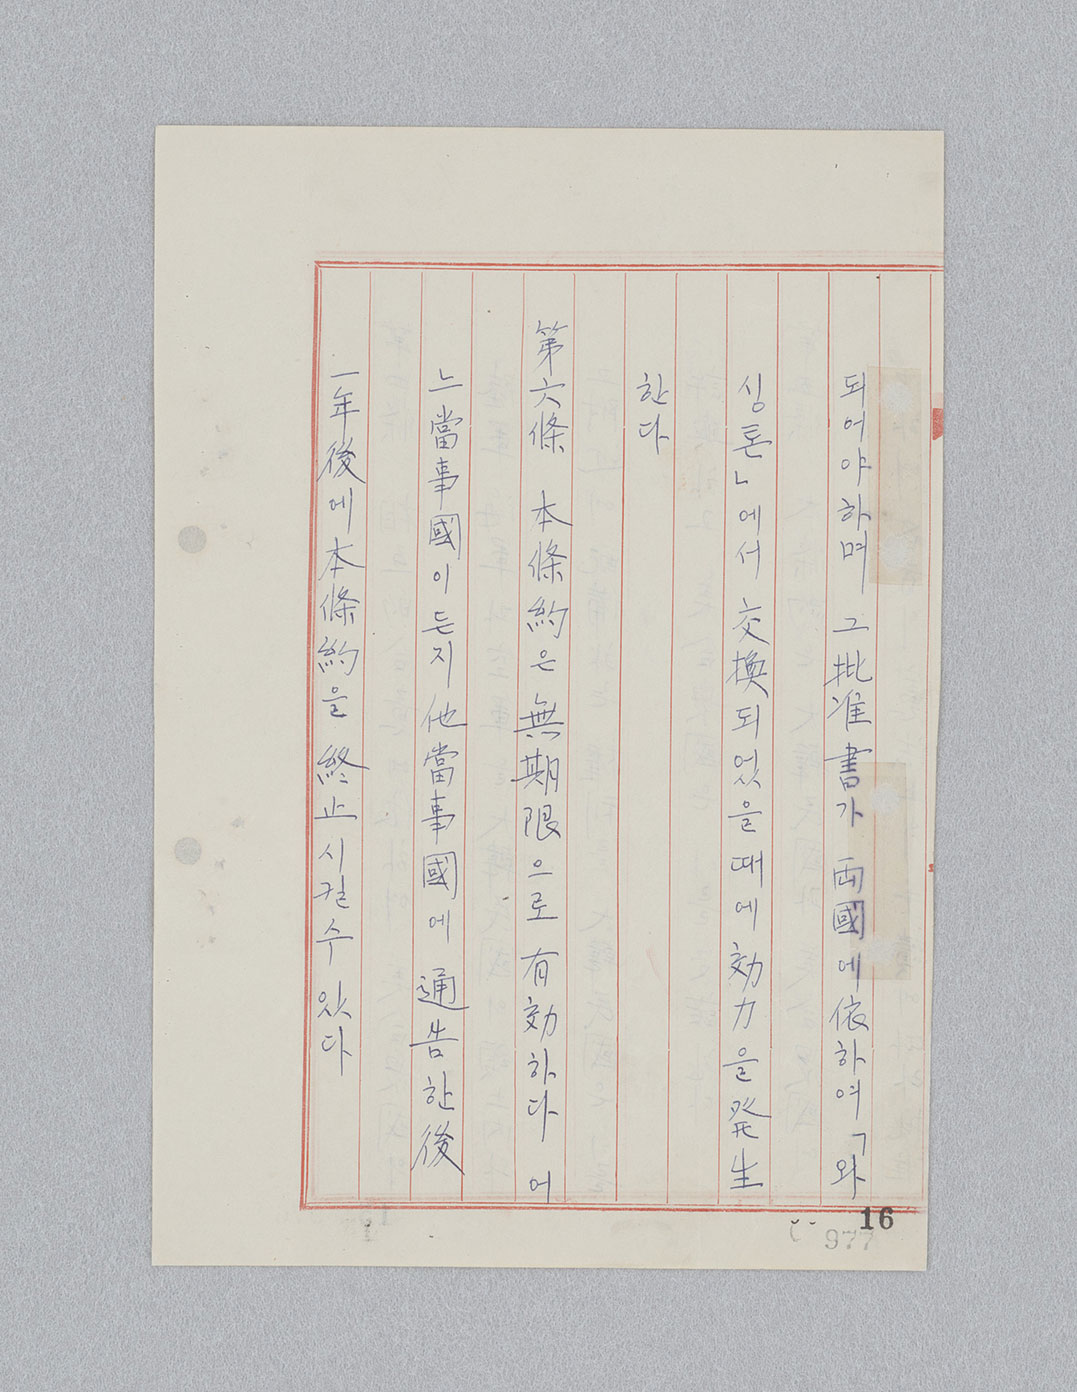 되어야하며 그批准書가 両國에依하여「와
싱톤」에서 交換되었을때에効力을発生
한다
第六條 本條約은無期限으로有効하다 어
느當事國이든지他當事國에 通告한後
一年後에本條約을 終止시킬수 있다
16
977